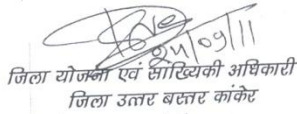 24/09/11
जिला योजना एवं सांख्यिकी अधिकारी
जिला उत्तर बस्तर कांकेर